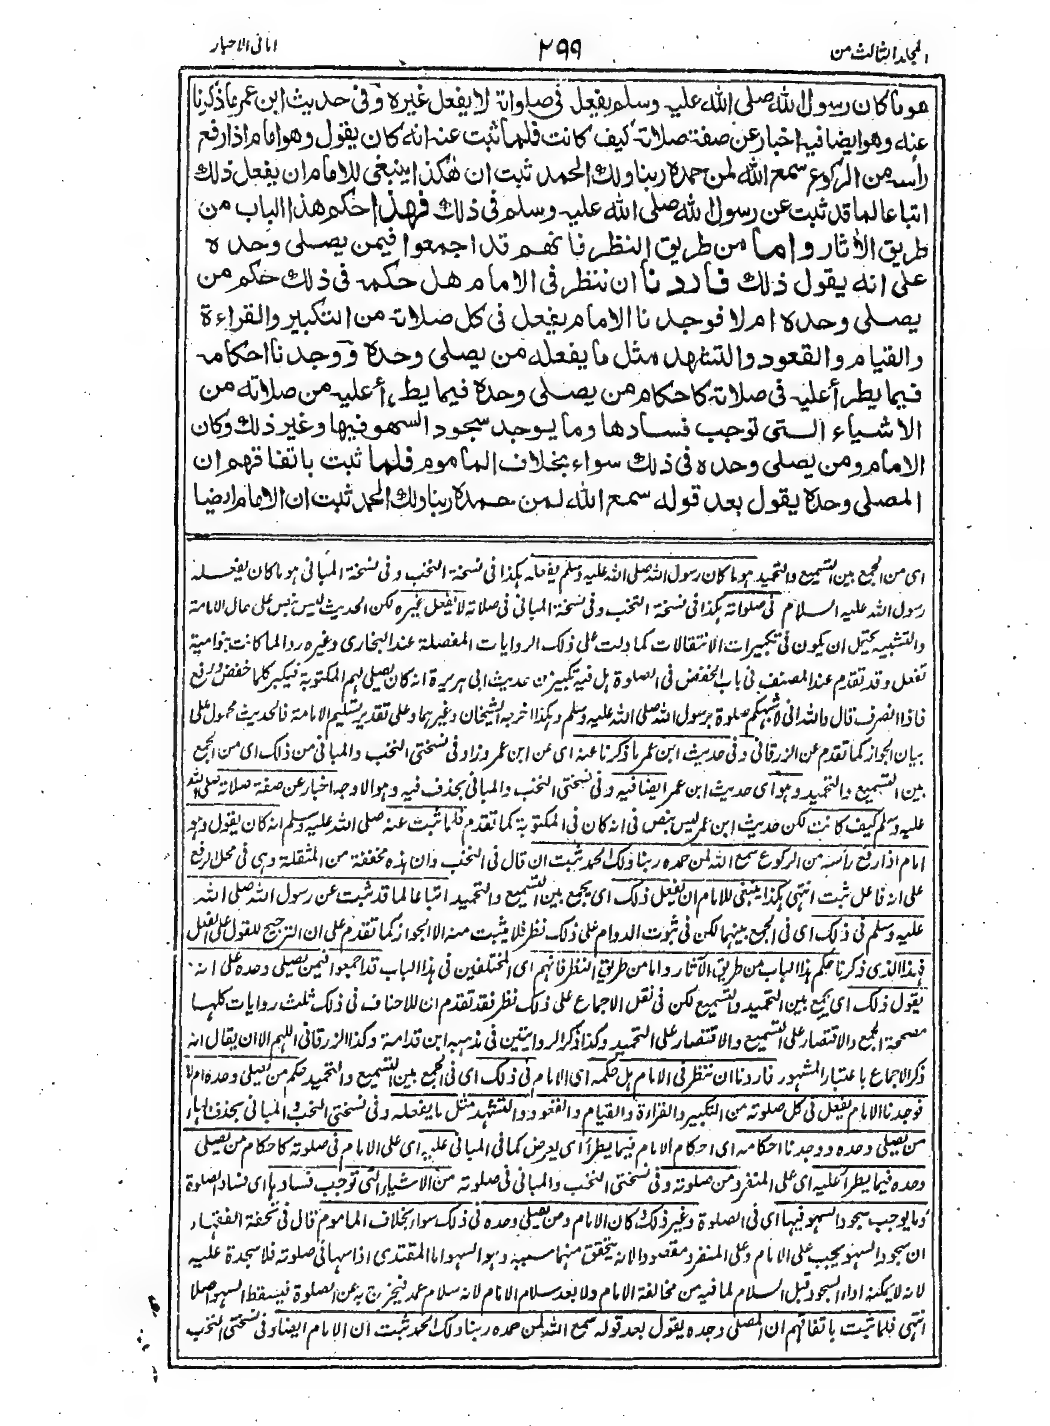 المجلد الثالث من
٢٩٩
امانی الاحبار
هو ما كان رسول الله صلى الله عليه وسلم يفعل فى صلواته لا يفعل غيره وفى حديث ابن عمر ما ذكرنا
عنه وهو ايضا فيه اخبار عن صفة صلاته كيف كانت فلما ثبت عنه انه كان يقول وهو امام اذا رفع
رأسه من الركوع سمع الله لمن حمده ربنا ولك الحمد ثبت ان هكذا ينبغى للامام ان يفعل ذلك
اتباعا لما قد ثبت عن رسول الله صلى الله عليه وسلم فى ذلك فهذا حكم هذا الباب من
طريق الآثار واما من طريق النظر فانهم قد اجمعوا فيمن يصلى وحده
على انه يقول ذلك فاردنا ان ننظر فى الامام هل حكمه فى ذلك حكم من
يصلى وحده ام لا فوجدنا الامام يفعل فى كل صلاته من التكبير والقراءة
والقيام والقعود والتشهد مثل ما يفعله من يصلى وحده ووجدنا احكامه
فيما يطرأ عليه فى صلاته كاحكام من يصلى وحده فيما يطرأ عليه من صلاته من
الاشياء التى توجب فسادها وما يوجب سجود السهو فيها وغير ذلك وكان
الامام ومن يصلى وحده فى ذلك سواء بخلاف الماموم فلما ثبت باتفاقهم ان
المصلى وحده يقول بعد قوله سمع الله لمن حمده ربنا ولك الحمد ثبت ان الامام ايضا
اى من الجمع بين التسميع والتحميد هو ما كان رسول الله صلى الله عليه وسلم يفعله هكذا فى نسخة النخب وفى نسخة المبانى هو ما كان يفعله
رسول الله عليه السلام فى صلواته هكذا فى نسخة النخب وفى نسخة المبانى فى صلاته لا يفعل غيره لكن الحديث ليس بنص على حال الامامة
والتشبيه يحتمل ان يكون فى تكبيرات الانتقالات كما دلت على ذلك الروايات المفصلة عند البخارى وغيره ردا لما كانت بنو امية
تفعل وقد تقدم عند المصنف فى باب الخفض فى الصلوة هل فيه تكبير من حديث ابى هريرة انه كان يصلى بهم المكتوبة فيكبر كلما خفض ورفع
فاذا انصرف قال والله انى لاشبهكم صلوة برسول الله صلى الله عليه وسلم وهكذا اخرجه الشيخان وغيرهما وعلى تقدير تسليم الامامة فالحديث محمول على
بيان الجواز كما تقدم عن الزرقانى وفى حديث ابن عمر ما ذكرنا عنه اى عن ابن عمر وزاد فى نسختى النخب والمبانى من ذلك اى من الجمع
بين التسميع والتحميد وهو اى حديث ابن عمر ايضا فيه وفى نسختى النخب والمبانى بحذف فيه وهو الاوجه اخبار عن صفة صلاته صلى الله
عليه وسلم كيف كانت لكن حديث ابن عمر ليس بنص فى انه كان فى المكتوبة كما تقدم فلما ثبت عنه صلى الله عليه وسلم انه كان يقول وهو
امام اذا رفع رأسه من الركوع سمع الله لمن حمده ربنا ولك الحمد ثبت ان قال فى النخب وان هذه مخففة من المثقلة وهى فى محل الرفع
على انه فاعل ثبت انتهى هكذا ينبغى للامام ان يفعل ذلك اى يجمع بين التسميع والتحميد اتباعا لما قد ثبت عن رسول الله صلى الله
عليه وسلم فى ذلك اى فى الجمع بينهما لكن فى ثبوت الدوام على ذلك نظر فلا يثبت منه الا الجواز كما تقدم على ان الترجيح للقول على الفعل
فهذا الذى ذكرنا حكم هذا الباب من طريق الآثار واما من طريق النظر فانهم اى المختلفين فى هذا الباب قد اجمعوا فيمن يصلى وحده على انه
يقول ذلك اى يجمع بين التحميد والتسميع لكن فى نقل الاجماع على ذلك نظر فقد تقدم ان للاحناف فى ذلك ثلث روايات كلها
مصححة الجمع والاقتصار على التسميع والاقتصار على التحميد وكذا ذكر الروايتين فى مذهبه ابن قدامة وكذا الزرقانى اللهم الا ان يقال انه
ذكر الاجماع باعتبار المشهور فاردنا ان ننظر فى الامام هل حكمه اى الامام فى ذلك اى فى الجمع بين التسميع والتحميد حكم من يصلى وحده ام لا
فوجدنا الامام يفعل فى كل صلوته من التكبير والقراءة والقيام والقعود والتشهد مثل ما يفعله وفى نسختى النخب والمبانى بحذف الهاء
من يصلى وحده ووجدنا احكامه اى احكام الامام فيما يطرأ اى يعرض كما فى المبانى عليه اى على الامام فى صلوته كاحكام من يصلى
وحده فيما يطرأ عليه اى على المنفرد من صلوته وفى نسختى النخب والمبانى فى صلوته من الاشياء التى توجب فسادها اى فساد الصلوة
وما يوجب سجود السهو فيها اى فى الصلوة وغير ذلك وكان الامام ومن يصلى وحده فى ذلك سواء بخلاف الماموم قال فى تحفة الفقهاء
ان سجود السهو يجب على الامام وعلى المنفرد مقصودا لانه يتحقق منهما سببه وهو السهو اما المقتدى اذا سها فى صلوته فلا سجدة عليه
لانه لا يمكنه اداء السجود قبل السلام لما فيه من مخالفة الامام ولا بعد سلام الامام لانه سلام عمد فيخرج به عن الصلوة فيسقط السهو اصلا
انتهى فلما ثبت باتفاقهم ان المصلى وحده يقول بعد قوله سمع الله لمن حمده ربنا ولك الحمد ثبت ان الامام ايضا وفى نسختى النخب